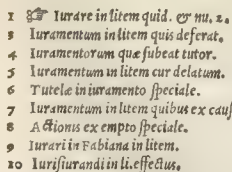 1 ☞ Iurare in litem quid. & nu. 2.
3 Iuramentum in litem quis deferat.
4 Iuramentorum quæ subeat tutor.
5 Iuramentum in litem cur delatum.
6 Tutelæ in iuramento speciale.
7 Iuramentum in litem quibus ex cauſ
8 Actionis ex empto speciale.
9 Iurari in Fabiana in litem.
10 Iurisiurandi in li. effectus.